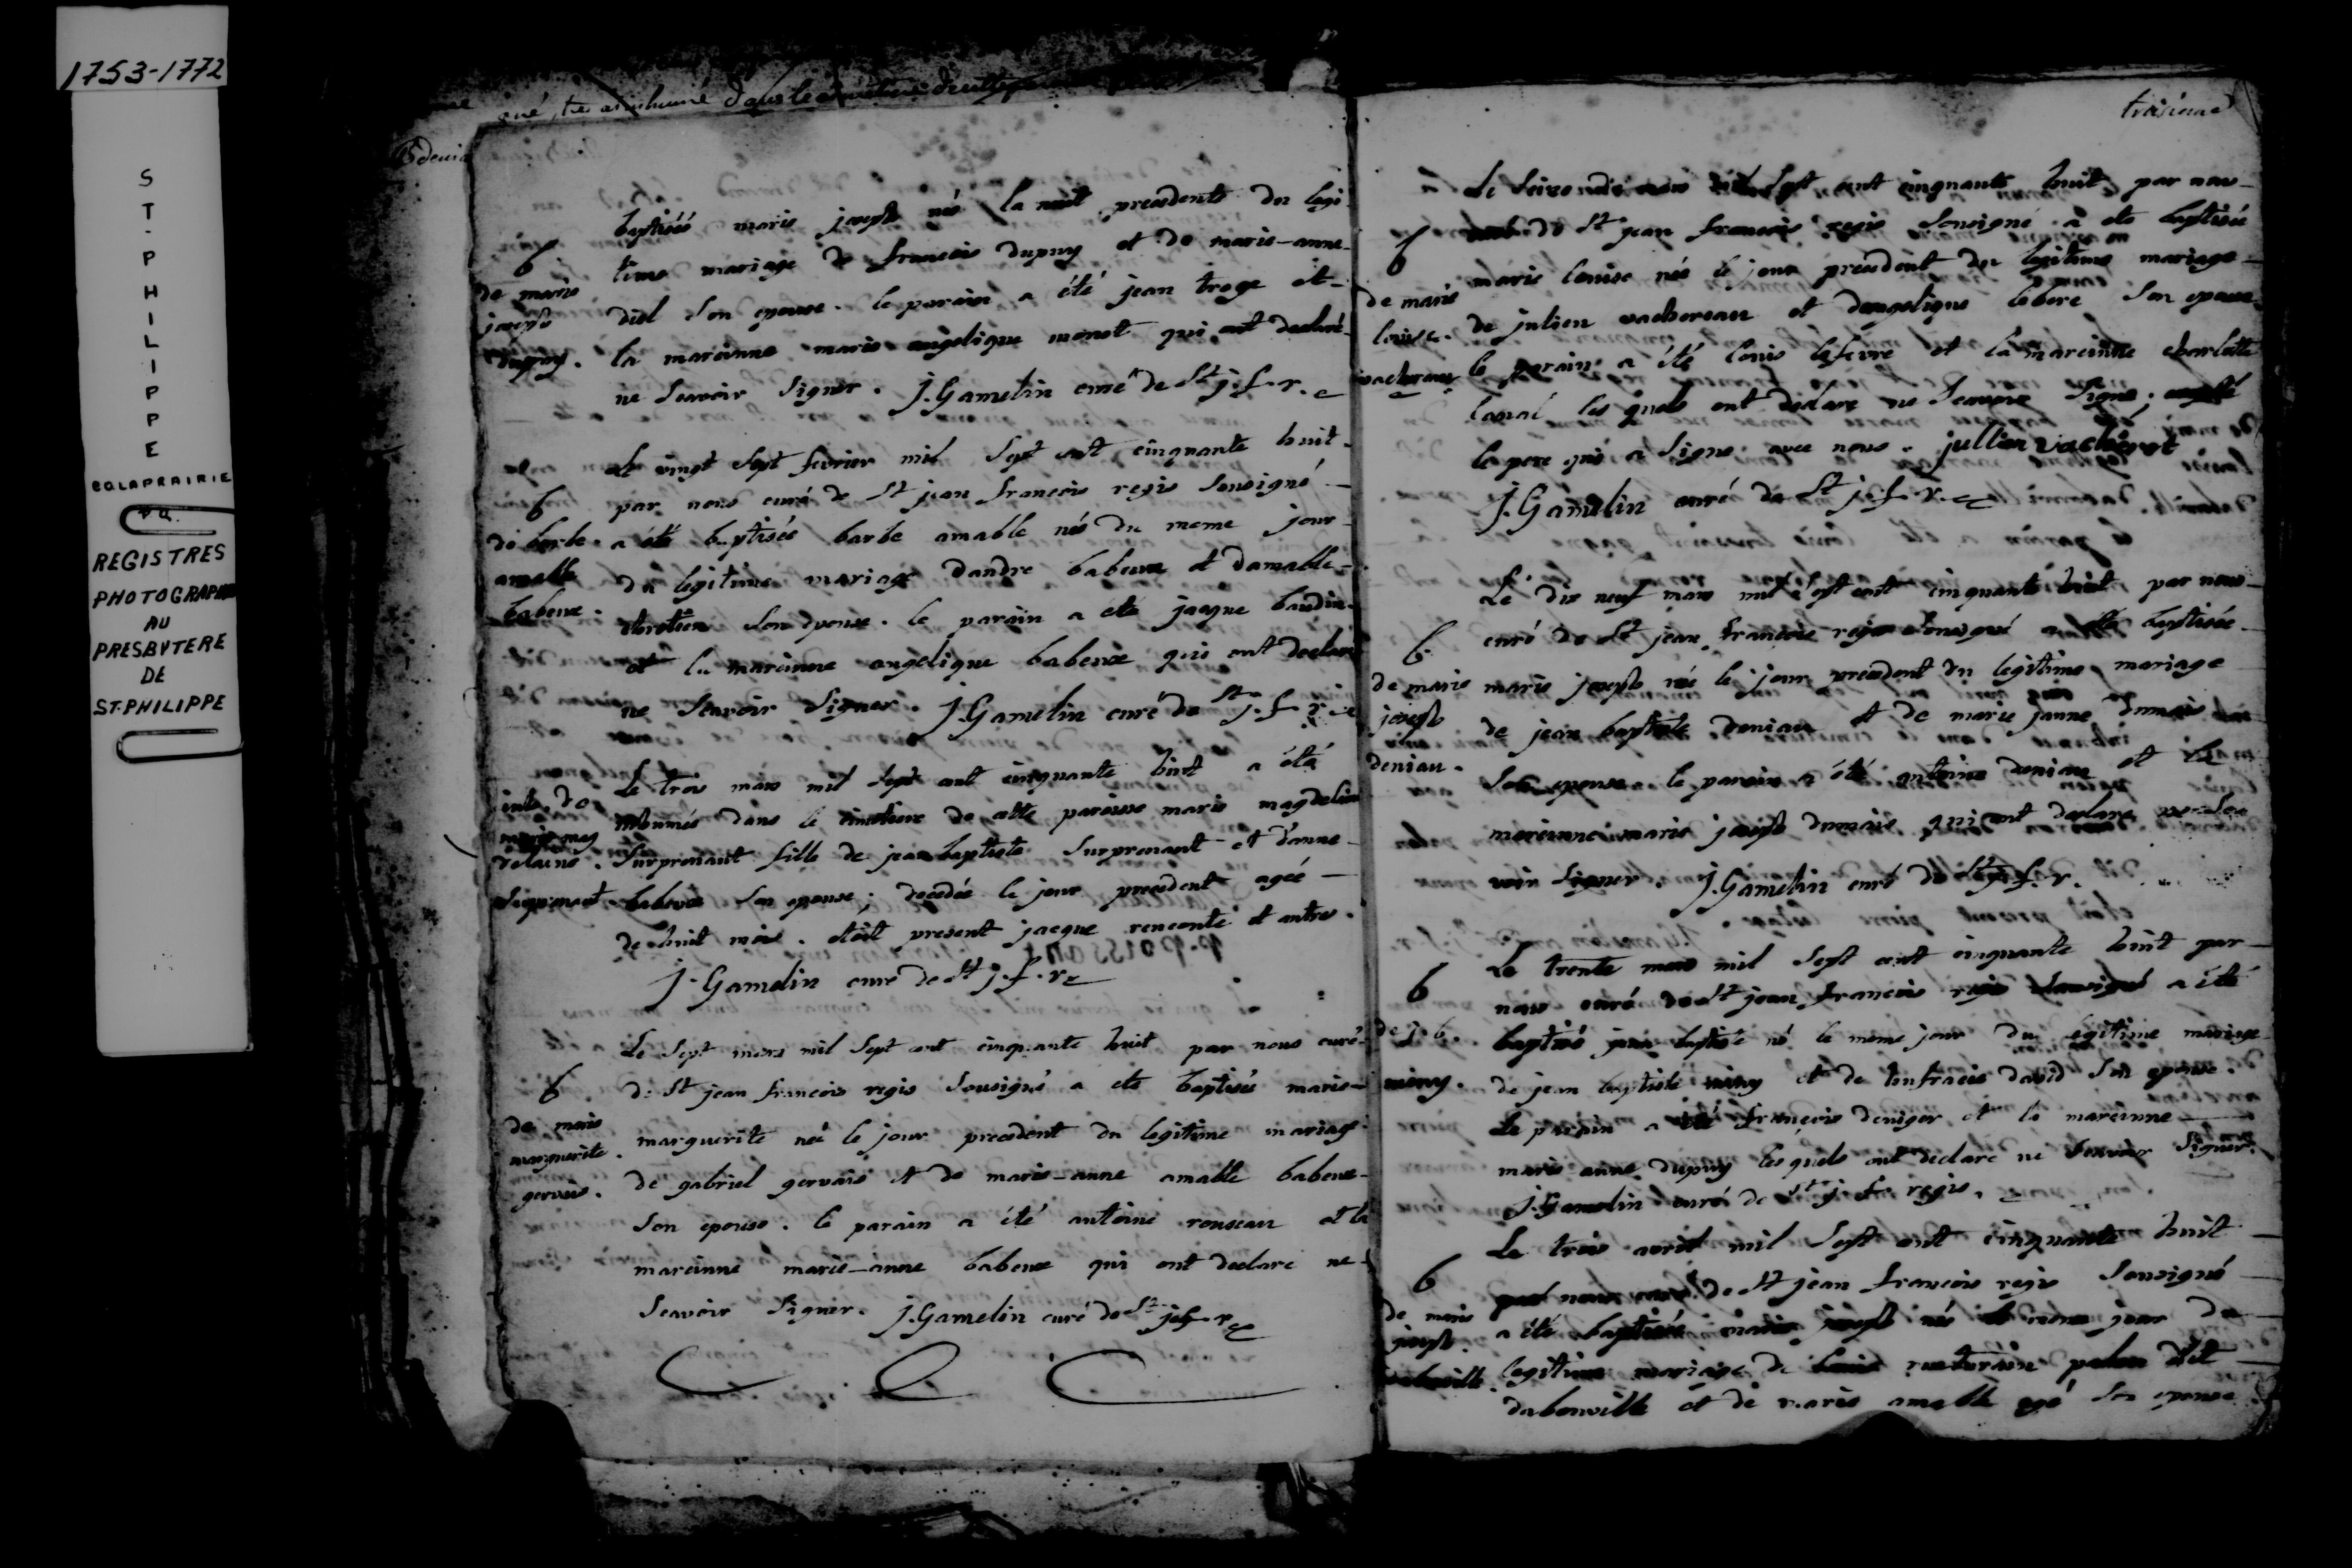 1753-1772
ST-PHILIPPE
CO LAPRAIRIE
REGISTRES
PHOTOGRAPHIÉS
AU
PRESBYTERE
DE
ST-PHILIPPE
baptisée marie joseph née la nuit precedente du legi-
B
time mariage de francois dupuy et de marie-anne
de marie
diel son epouse. le parain a été jean troge et
joseph
dupuy.
la mareinne marie angelique monet qui ont declaré
ne scavoir signer. J. Gamelin curé de St j. f. r.
Le vingt sept fevrier mil sept cent cinquante huit
B
par nous curé de St jean francois regis sousigné
de barbe
a été baptisée barbe amable née du meme jour
amable
du legitime mariage dandre babeux et damable
babeux.
son epouse. le parain a été jacque baudin
et la mareinne angelique babeux qui ont declaré
ne scavoir signer. J. Gamelin curé de St j. f. r.
Le trois mars mil sept cent cinquante huit a été
inh. de
inhumée dans le cimetiere de cette paroisse marie magdelene
marie mag
delaine.
surprenant fille de jean baptiste surprenant et danne
surprenant
babeux son epouse; decedée le jour precedent agée
de huit mois. etoit present jacque renconte et autres.
J. Gamelin curé de St j. f. r.
Le sept mars mil sept cent cinquante huit par nous curé
B
de St jean francois regis sousigné a eté baptisée marie-
de marie
marguerite.
marguerite née le jour precedent du legitime mariage
gervais.
de gabriel gervais et de marie-anne amable babeux
son epouse. le parain a été antoine rouseau et la
mareinne marie-anne babeux qui ont declare ne
scavoir signer. J. Gamelin curé de St j. f. r.
troisieme
Le seize de mars mil sept cent cinquante huit par nous
curé de St jean francois regis sousigné a eté baptisée
B
marie louise née le jour precedent du legitime mariage
de marie
louise
vachereau
de julien vachereau et dangelique lebere son epouse
le parain a été louis lefevre et la mareinne charlotte
les quels ont declare ne scavoir signe;
le pere qui a signe avec nous. jullien vacherot
J. Gamelin curé de St j. f. r.
Le dix neuf mars mil sept cent cinquante huit par nous
B.
curé de St jean francois regis sousigné a été baptisée
de marie
marie joseph née le jour precedent du legitime mariage
joseph
de jean baptiste deniau et de marie janne dumais
deniau.
son epouse. le parain a été antoine deniau et la
mareinne marie joseph dumais qui ont declare ne sca
voir signer. J. Gamelin curé de St j. f. r.
Le trente mars mil sept cent cinquante huit par
B
nous curé de St jean francois regis sousigné a été
de j. b.
baptisé jean baptiste né le meme jour du legitime mariage
de jean baptiste et de david son epouse.
Le parain a été francois deniger et la mareinne
marie anne dupuy les quels ont declare ne scavoir signer.
J. Gamelin curé de St j. f. regis.
Le trois avril mil sept cent cinquante huit
B
par nous curé de St jean francois regis sousigné
de marie
joseph.
a été baptisée marie joseph née le meme jour du
legitime mariage de dit
dabonville et de marie amable son epouse